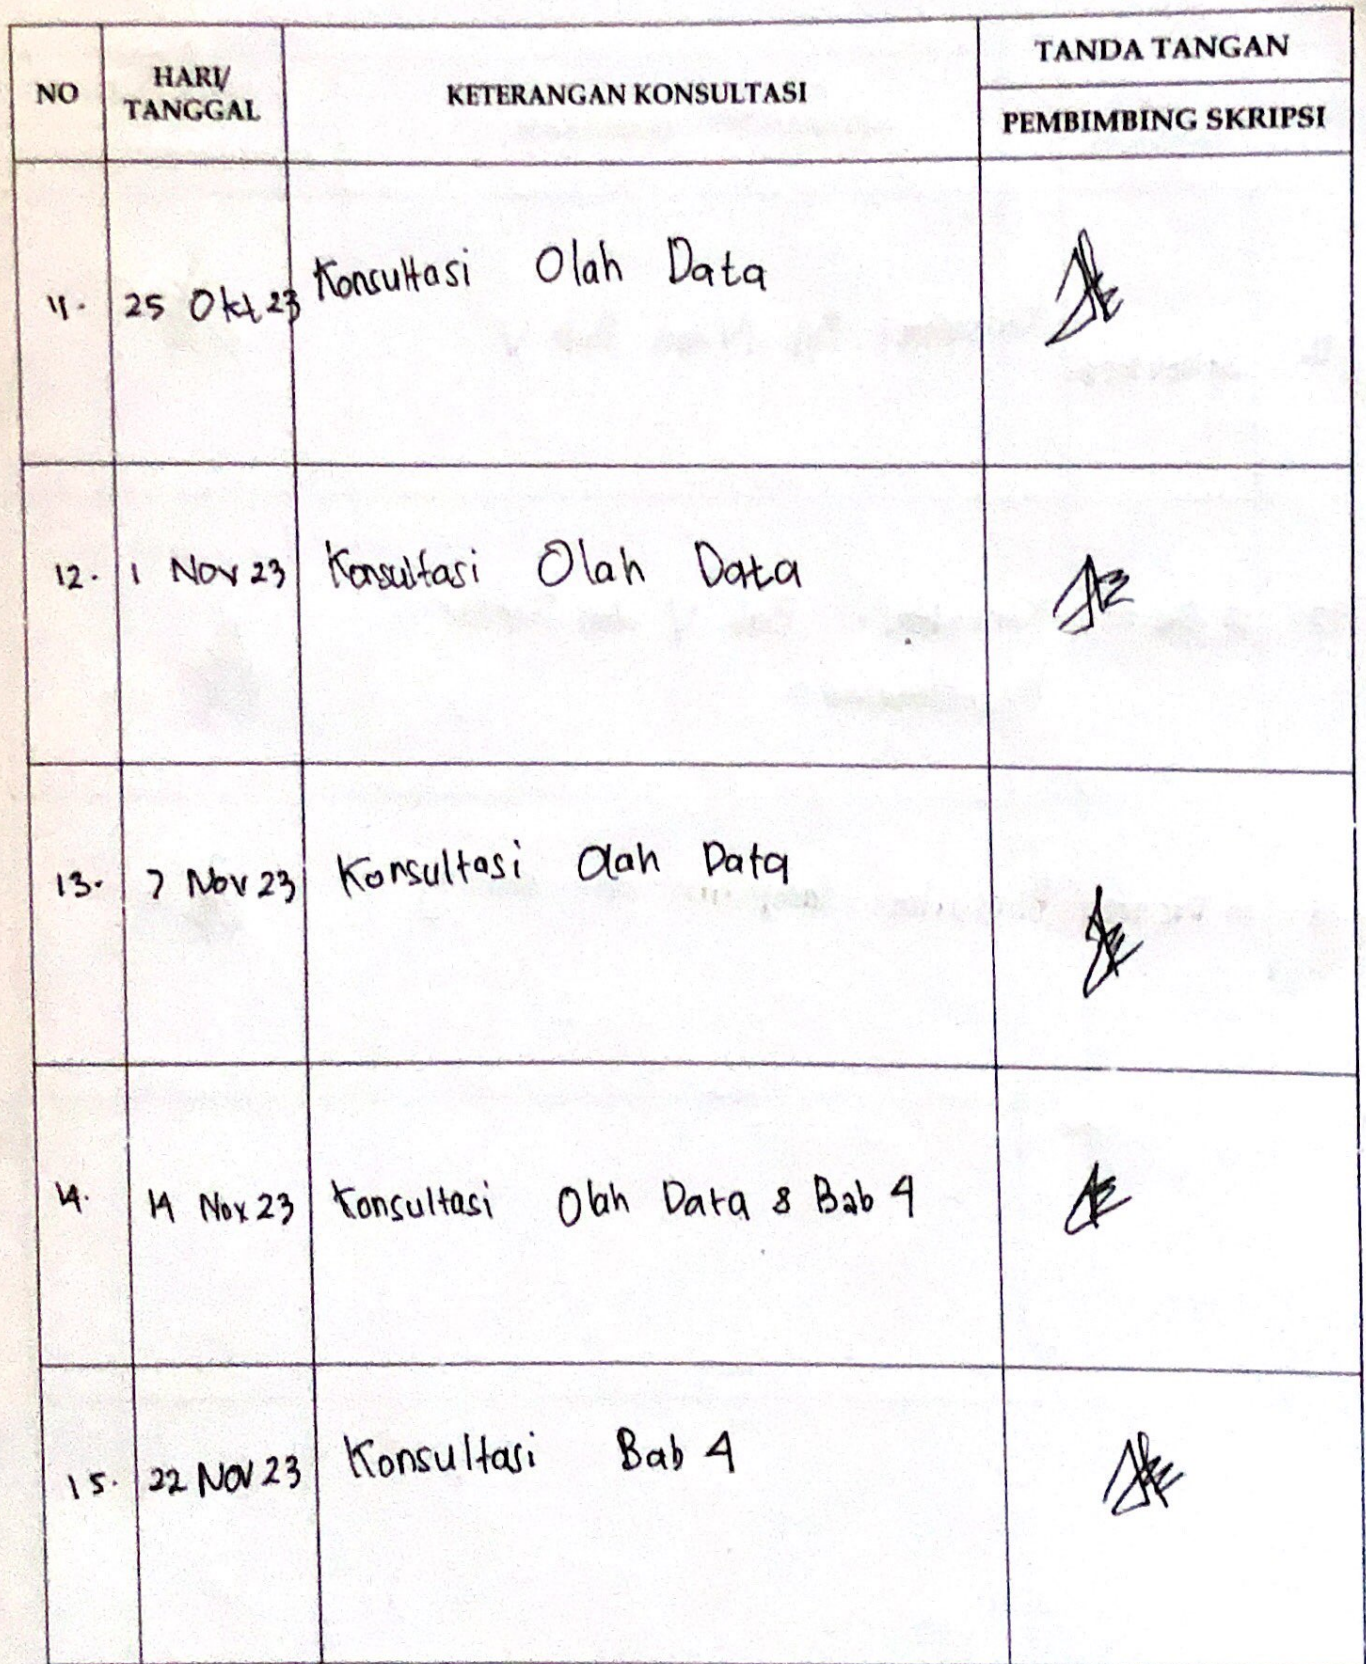 NO
HARI/
TANGGAL
KETERANGAN KONSULTASI
TANDA TANGAN
PEMBIMBING SKRIPSI
11. 25 Okt 23 Konsultasi Olah Data
12. 1 Nov 23 Konsultasi Olah Data
13. 7 Nov 23 Konsultasi Olah Data
14. 14 Nov 23 Konsultasi Olah Data & Bab 4
15. 22 Nov 23 Konsultasi Bab 4